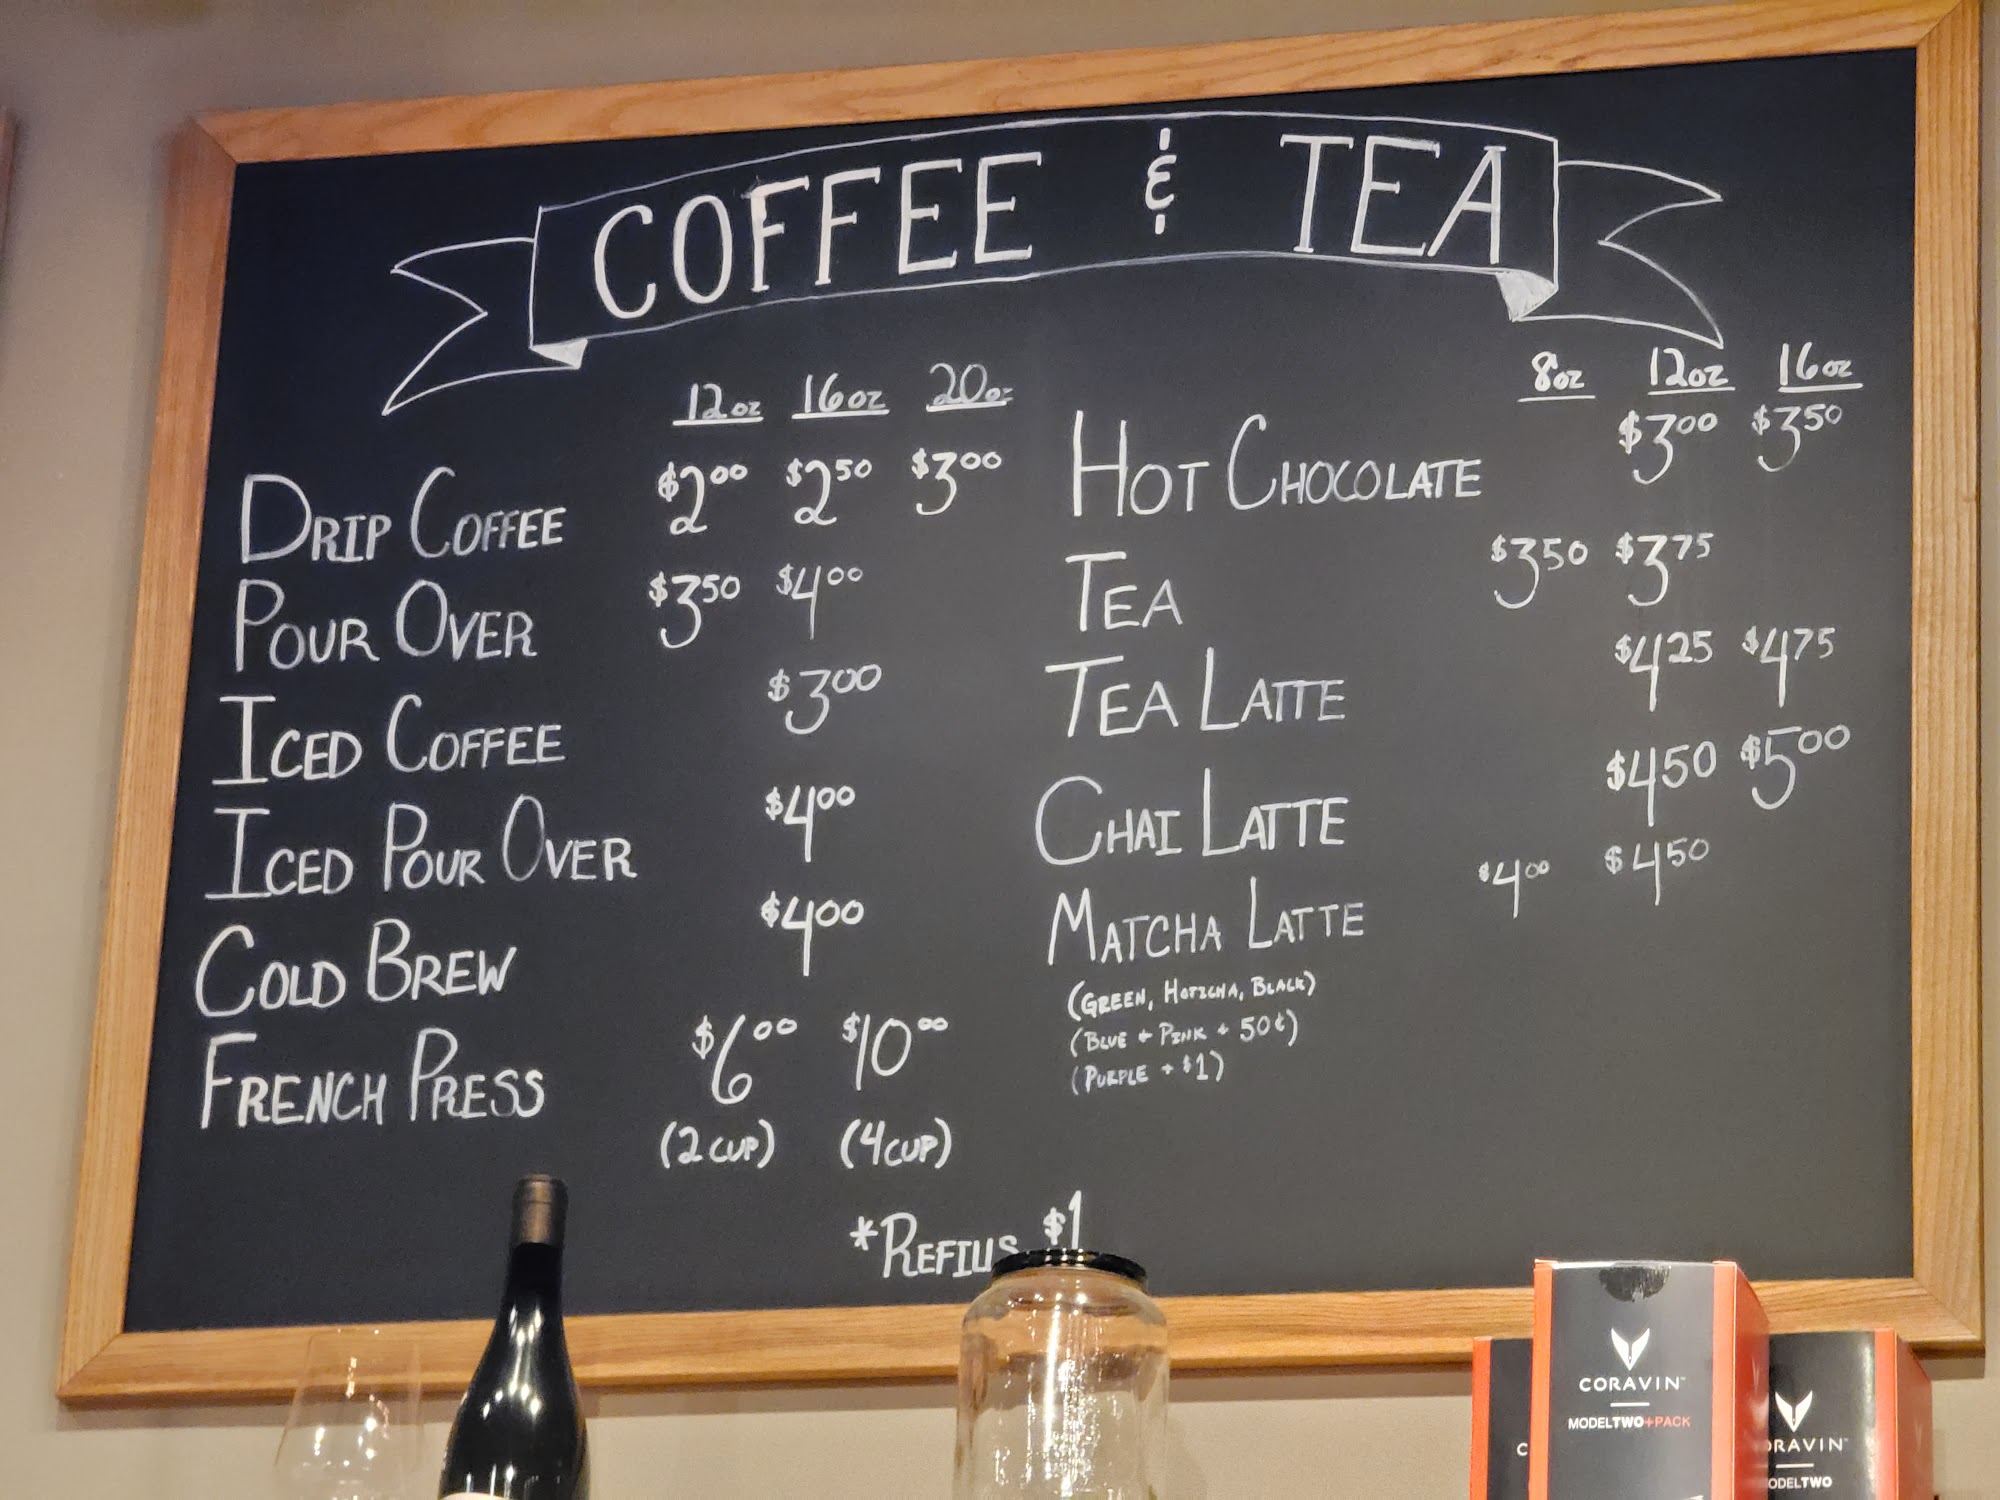 COFFEE & TEA
12oz 16oz 20oz
DRIP COFFEE $2.00 $2.50 $3.00
POUR OVER $3.50 $4.00
ICED COFFEE $3.00
ICED POUR OVER $4.00
COLD BREW $4.00
FRENCH PRESS $6.00 $10.00
(2 CUP) (4 CUP)
8oz 12oz 16oz
HOT CHOCOLATE $3.00 $3.50
TEA $3.50 $3.75
TEA LATTE $4.25 $4.75
CHAI LATTE $4.50 $5.00
MATCHA LATTE $4.00 $4.50
(GREEN, HOJICHA, BLACK)
(BLUE + PINK + 50¢)
(PURPLE + $1)
*REFILLS $1
CORAVIN™
MODELTWO+PACK
ORAVIN™
ODELTWO
C